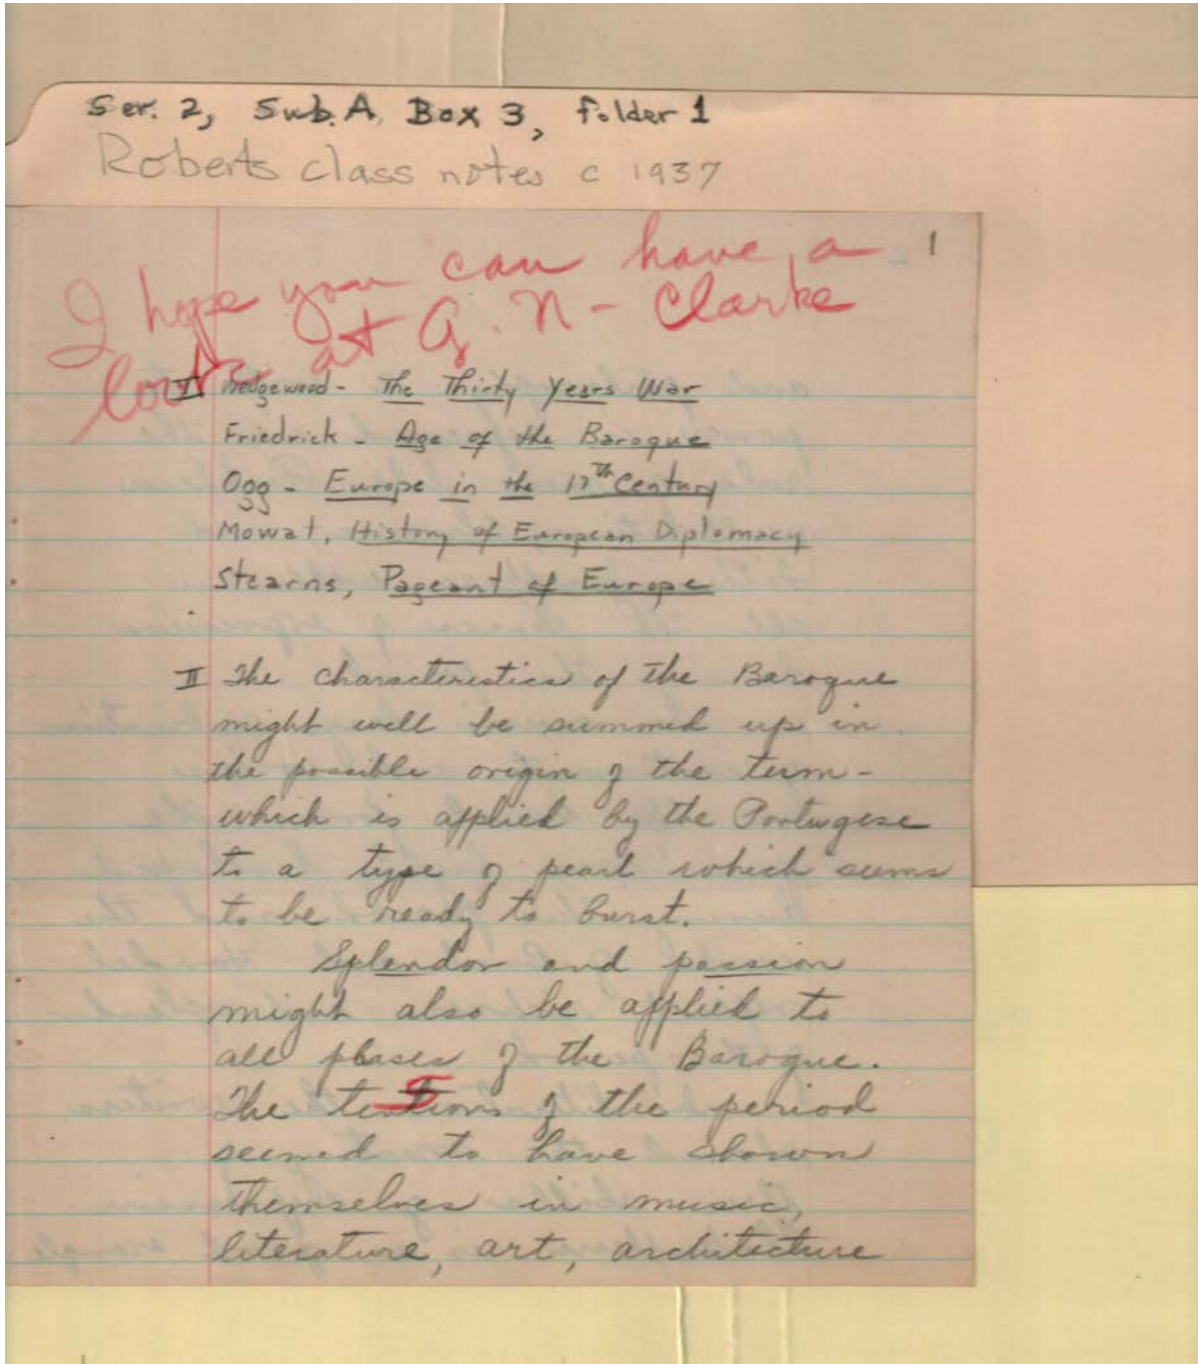 Ser. 2, Sub. A, Box 3, folder 1
Roberts class notes c 1937
1
I hope you can have a
look at G. N - Clarke
I Wedgewood - The Thirty Years War
Friedrick - Age of the Baroque
Ogg - Europe in the 17th Century
Mowat, History of European Diplomacy
Stearns, Pageant of Europe
II The characteristics of the Baroque
might well be summed up in
the possible origin of the term -
which is applied by the Portugese
to a type of pearl which seems
to be ready to burst.
Splendor and passion
might also be applied to
all phases of the Baroque.
The tensions of the period
seemed to have shown
themselves in music,
literature, art, architecture